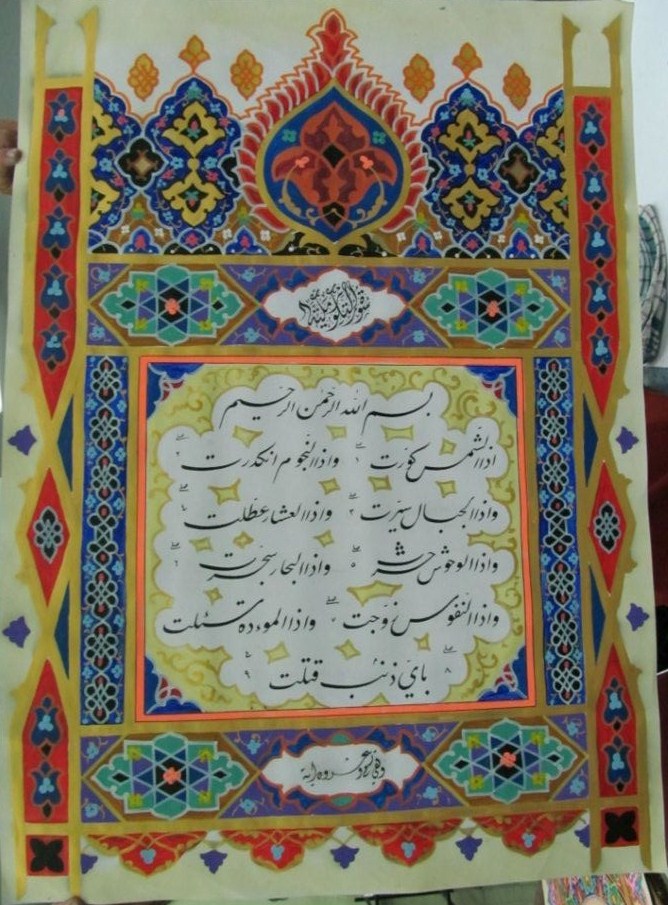 سورة التكوير مكية
بسم الله الرحمن الرحيم
اذا الشمس كوّرت ١ واذا النّجوم انكدرت ٢
واذا الجبال سيّرت ٣ واذا العشار عطّلت ٤
واذا الوحوش حشرت ٥ واذا البحار سجّرت ٦
واذا النّفوس زوّجت ٧ واذا الموءدة سئلت
٨ بايّ ذنب قتلت ٩